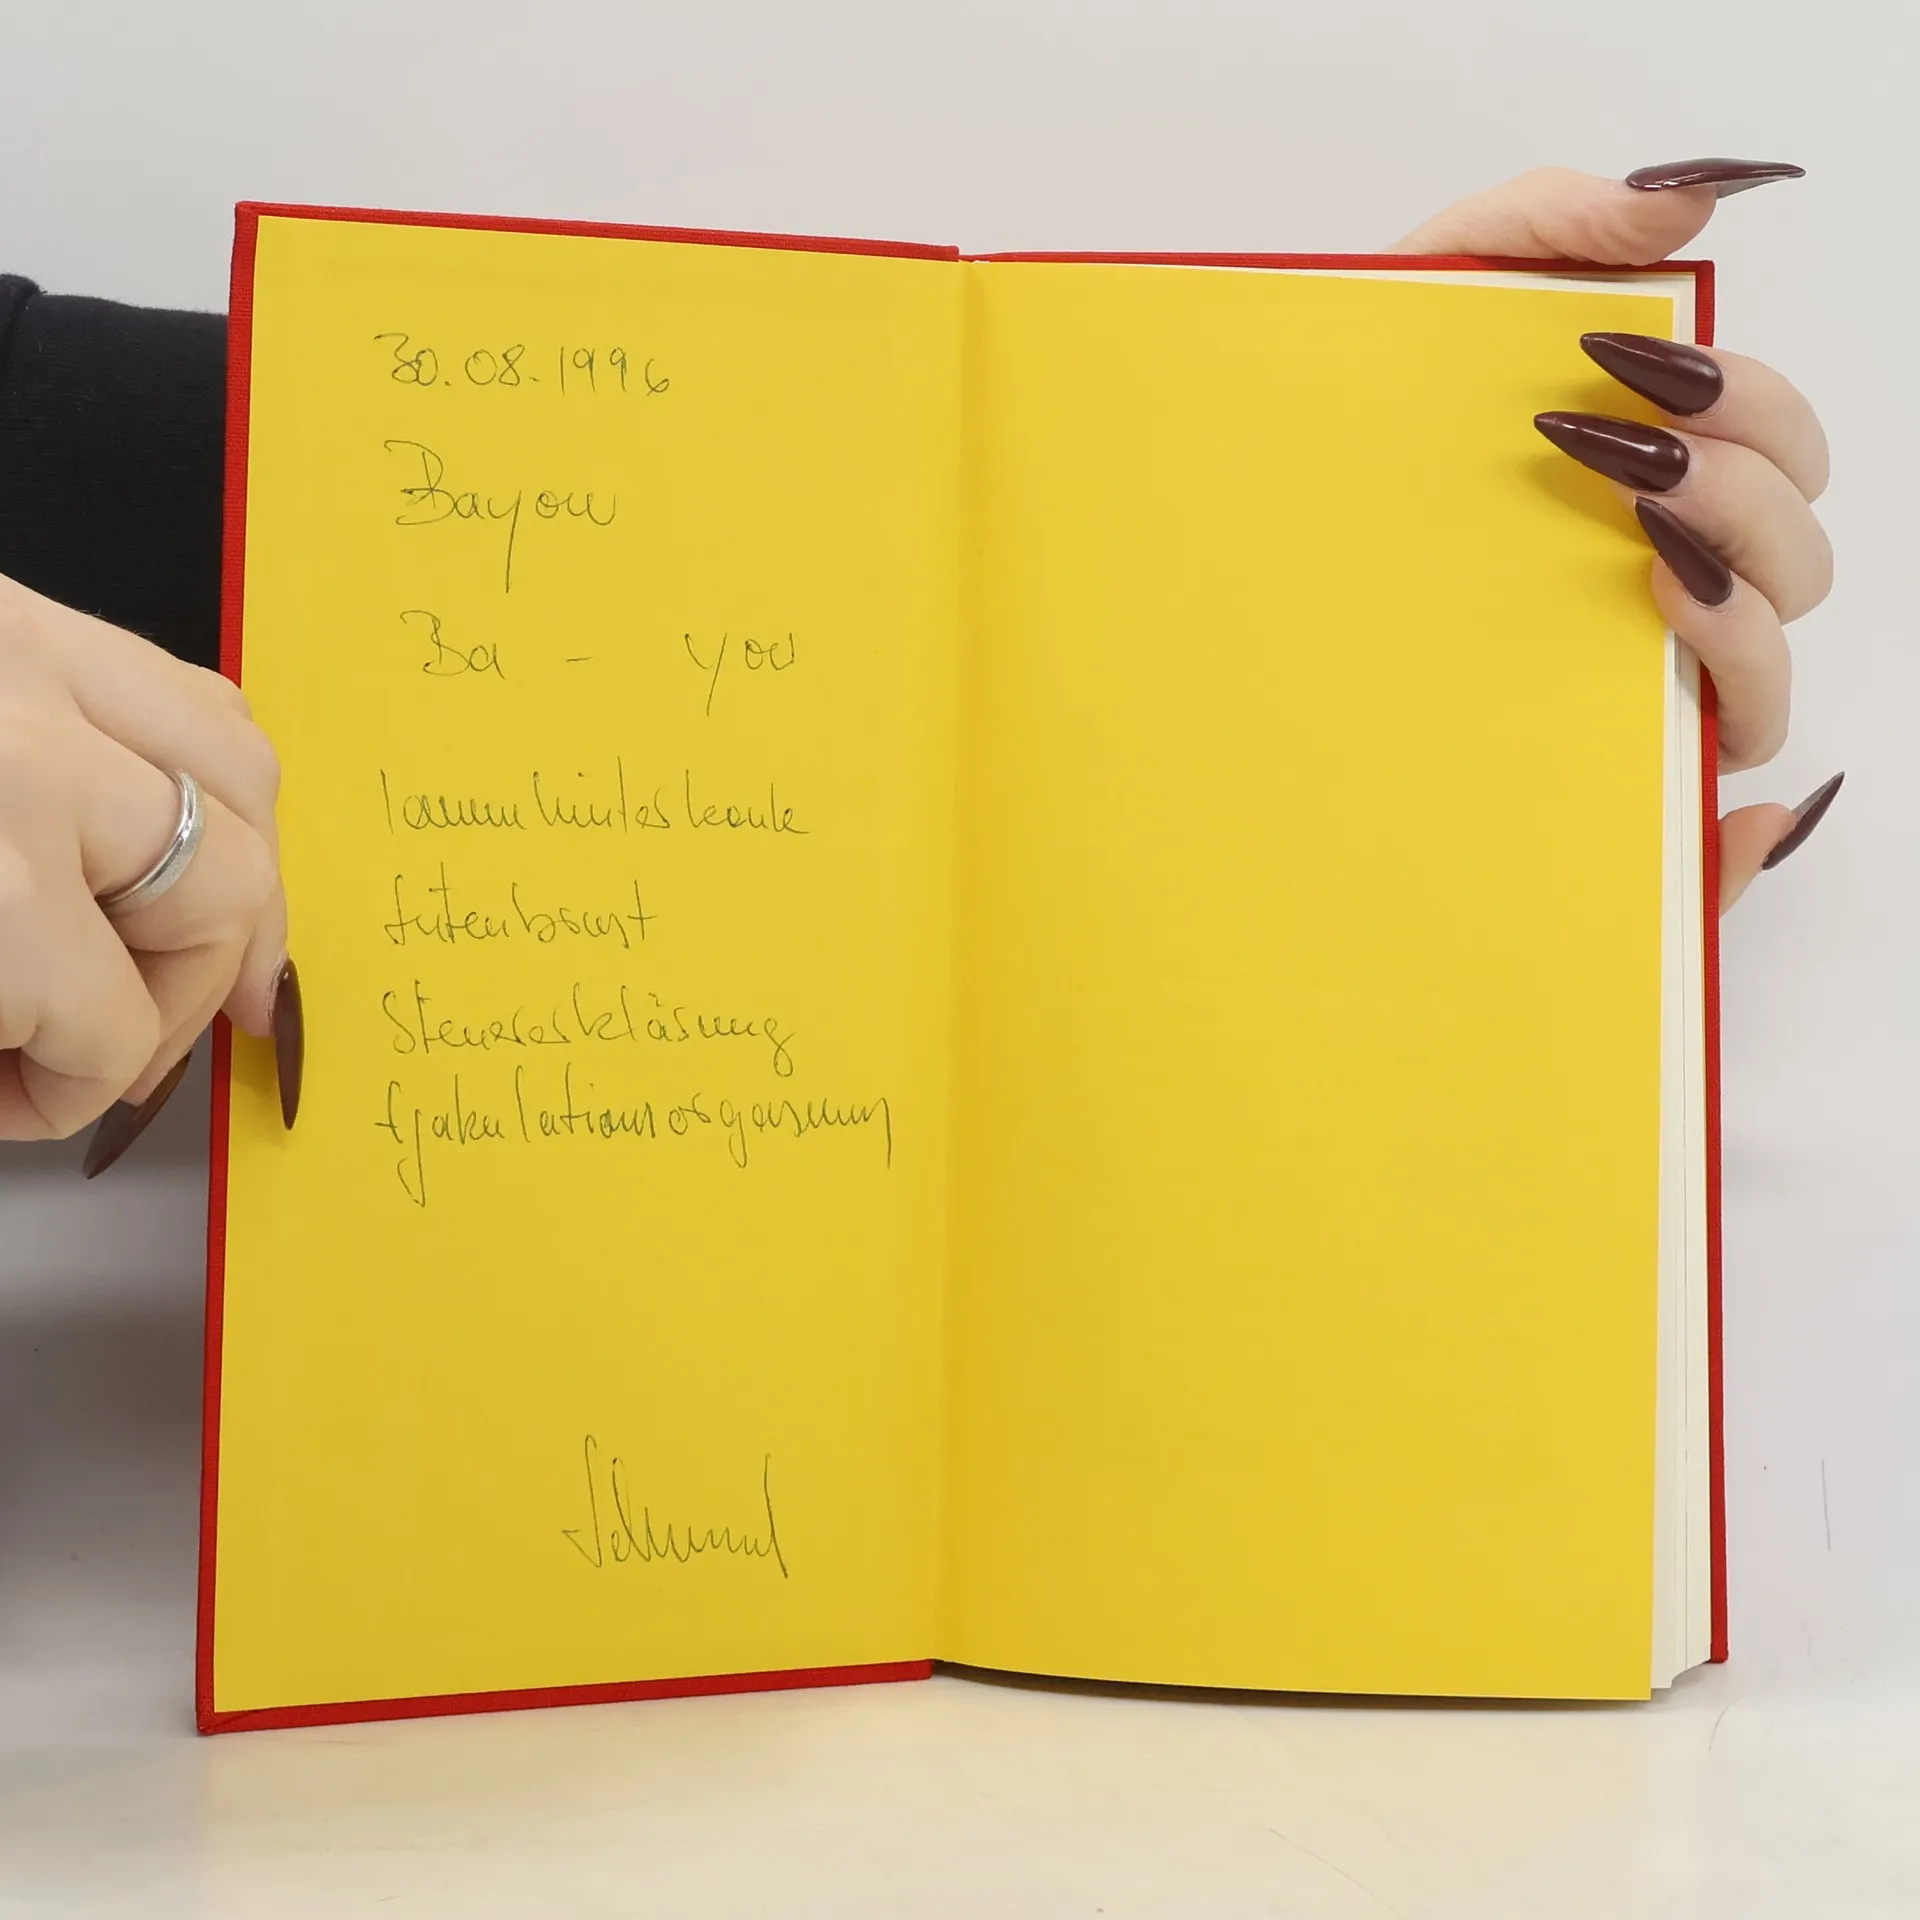 30.08.1996
Bayou
Ba - you
Lammhinterkeule
Entenbrust
Steuererklärung
Ejakulationsorgasmus